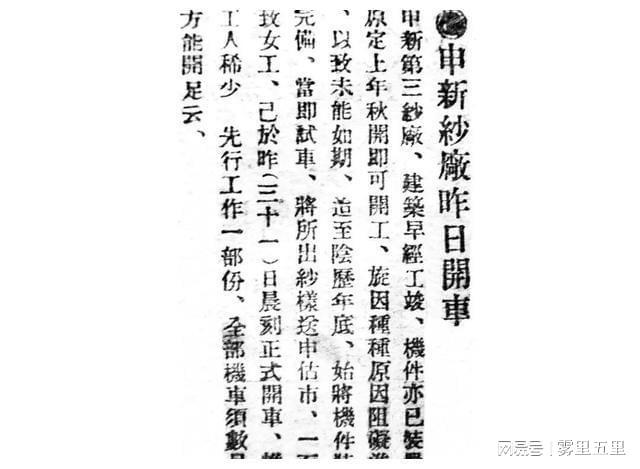 申新紗廠昨日開車
申新第三紗廠、建築早經工竣、機件亦已裝
原定上年秋開即可開工、旋因種種原因阻礙
、以致未能如期、迨至陰歷年底、始將機件裝
完備、當即試車、將所出紗樣送申估市、一面
致女工、己於昨(三十一)日晨刻正式開車、
工人稀少 先行工作一部份、全部機車須數
方能開足云、
搜狐号@雾里五里